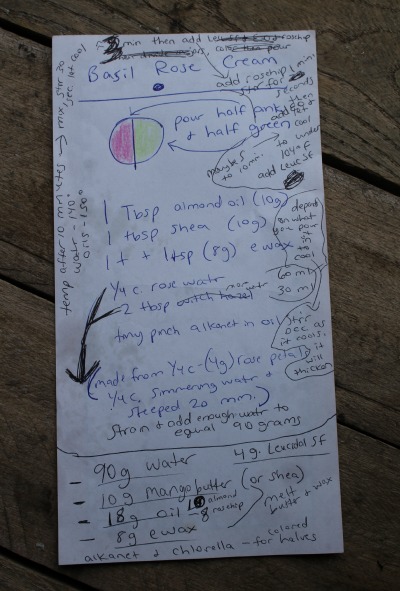 min then add Leucidal rosehip
Basil Rose Cream
add rosehip 1 min
stir for
seconds
then
let
cool
to under
104°F
add Leuc SF
maybe 5
to 10 min.
pour half pink
& half green
temp after 10 minutes → mix, stir 30 sec, let cool
water - 140°
oils - 150°
1 Tbsp almond oil (10g)
1 tbsp shea (10g)
1 t + 1/4tsp (8g) e wax
1/4 c. rose water
60 ml
2 tbsp witch hazel more water
30 ml
tiny pinch alkanet in oil
depends
on what
you pour
it in
to
cool
stir
occ as
it cools.
it
will
thicken
(made from 1/4 c - (4g) rose petals
1/4 c. simmering water &
steeped 20 min.)
Strain & add enough water to
equal 90 grams
- 90g water
4g. Leucidal SF
- 10g mango butter (or shea)
- 18g oil 10 almond
- 8 rosehip
- 8g e wax
melt
butter & wax
alkanet & chlorella - for colored halves